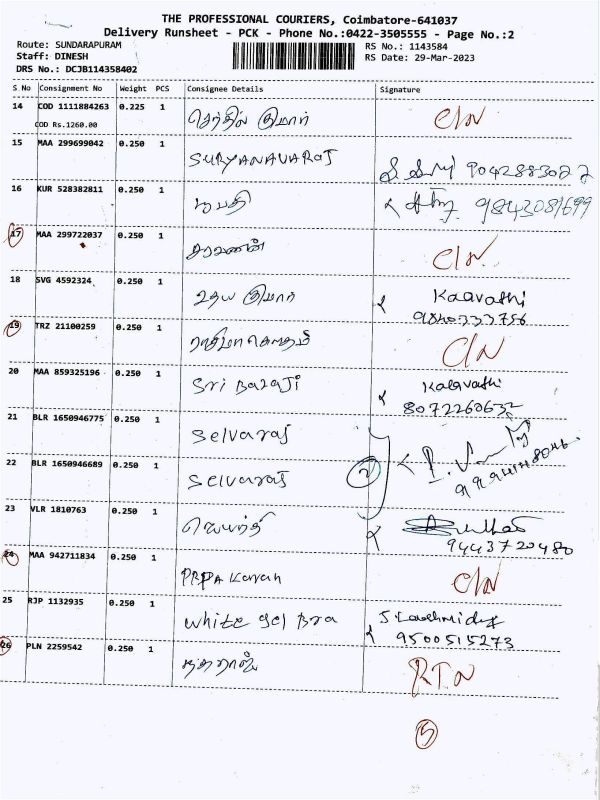 THE PROFESSIONAL COURIERS, Coimbatore-641037
Delivery Runsheet - PCK - Phone No.:0422-3505555 - Page No.:2
Route: SUNDARAPURAM RS No.: 1143584
Staff: DINESH RS Date: 29-Mar-2023
DRS No.: DCJB114358402
S No Consignment No Weight PCS Consignee Details Signature
14 COD 1111884263 0.225 1 செந்தில் குமார் C/N
COD Rs.1260.00
15 MAA 299699042 0.250 1 SURYANAVARAJ 9042883022
16 KUR 528382811 0.250 1 பூபதி 9843081699
17 MAA 299722037 0.250 1 சரவணன் C/N
18 SVG 4592324 0.250 1 உதய குமார் Kaavathi
9840333756
19 TRZ 21100259 0.250 1 C/N
20 MAA 859325196 0.250 1 Sri Balaji Kalavathi
8072260632
21 BLR 1650946775 0.250 1 Selvaraj
22 BLR 1650946689 0.250 1 Selvaraj 2
23 VLR 1810763 0.250 1 ஜெயந்தி
9443720480
24 MAA 942711834 0.250 1 C/N
25 RJP 1132935 0.250 1 White gel Bra
9500515273
26 PLN 2259542 0.250 1 நடராஜ் RTN
5